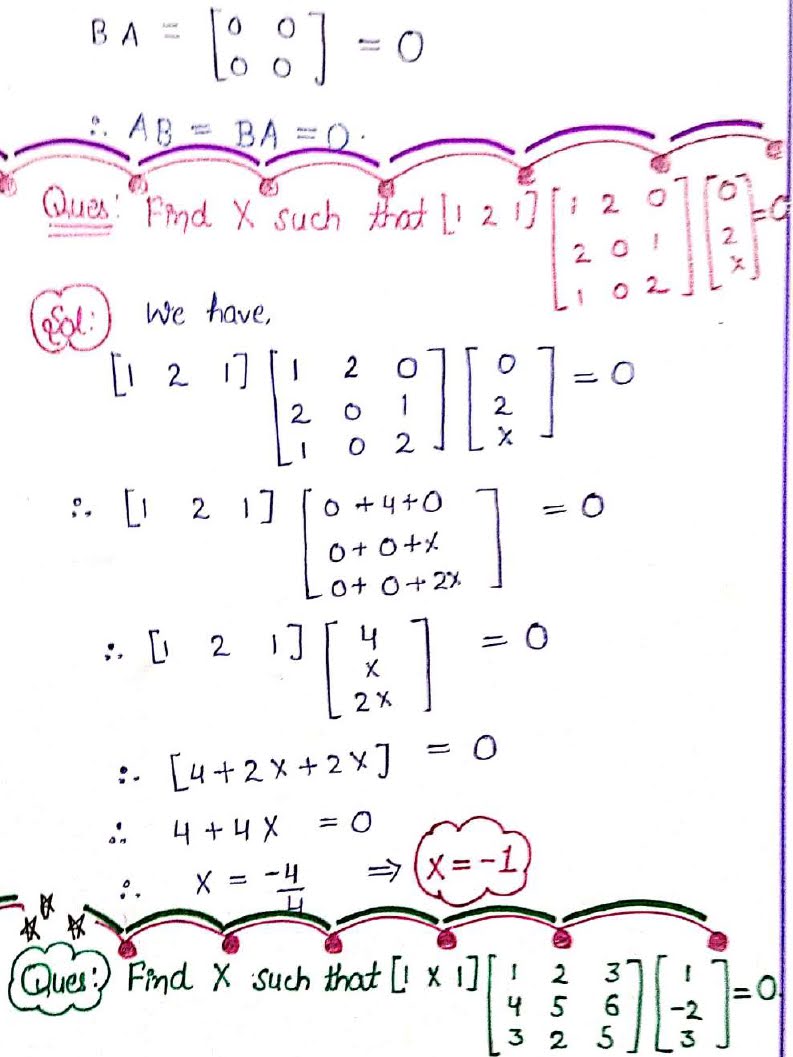 BA = [0 0
0 0] = 0
∴ AB = BA = 0.
Ques: Find X such that [1 2 1] [1 2 0
2 0 1
1 0 2] [0
2
x] = 0
Sol: We have,
[1 2 1] [1 2 0
2 0 1
1 0 2] [0
2
x] = 0
∴ [1 2 1] [0 + 4 + 0
0 + 0 + x
0 + 0 + 2x] = 0
∴ [1 2 1] [4
x
2x] = 0
∴ [4 + 2x + 2x] = 0
∴ 4 + 4x = 0
∴ x = -4/4 ⇒ x = -1
Ques: Find X such that [1 x 1] [1 2 3
4 5 6
3 2 5] [1
-2
3] = 0.